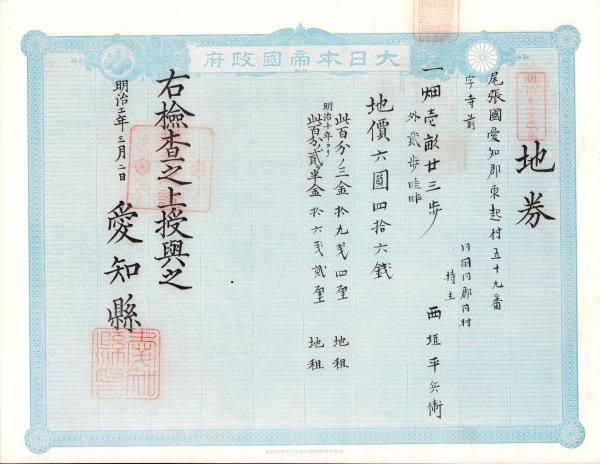 大日本帝國政府
地券
尾張國愛知郡東起村五十九番
字寺前
同国同郡同村
持主
西垣平兵衛
一畑壱畝廿三歩
外貳歩畦畔
地價六圓四拾六銭
此百分ノ三金拾九銭四厘 地租
明治十年ヨリ
此百分ノ貳半金拾六銭貳厘 地租
右檢査之上授與之
明治十一年三月二日
愛知縣